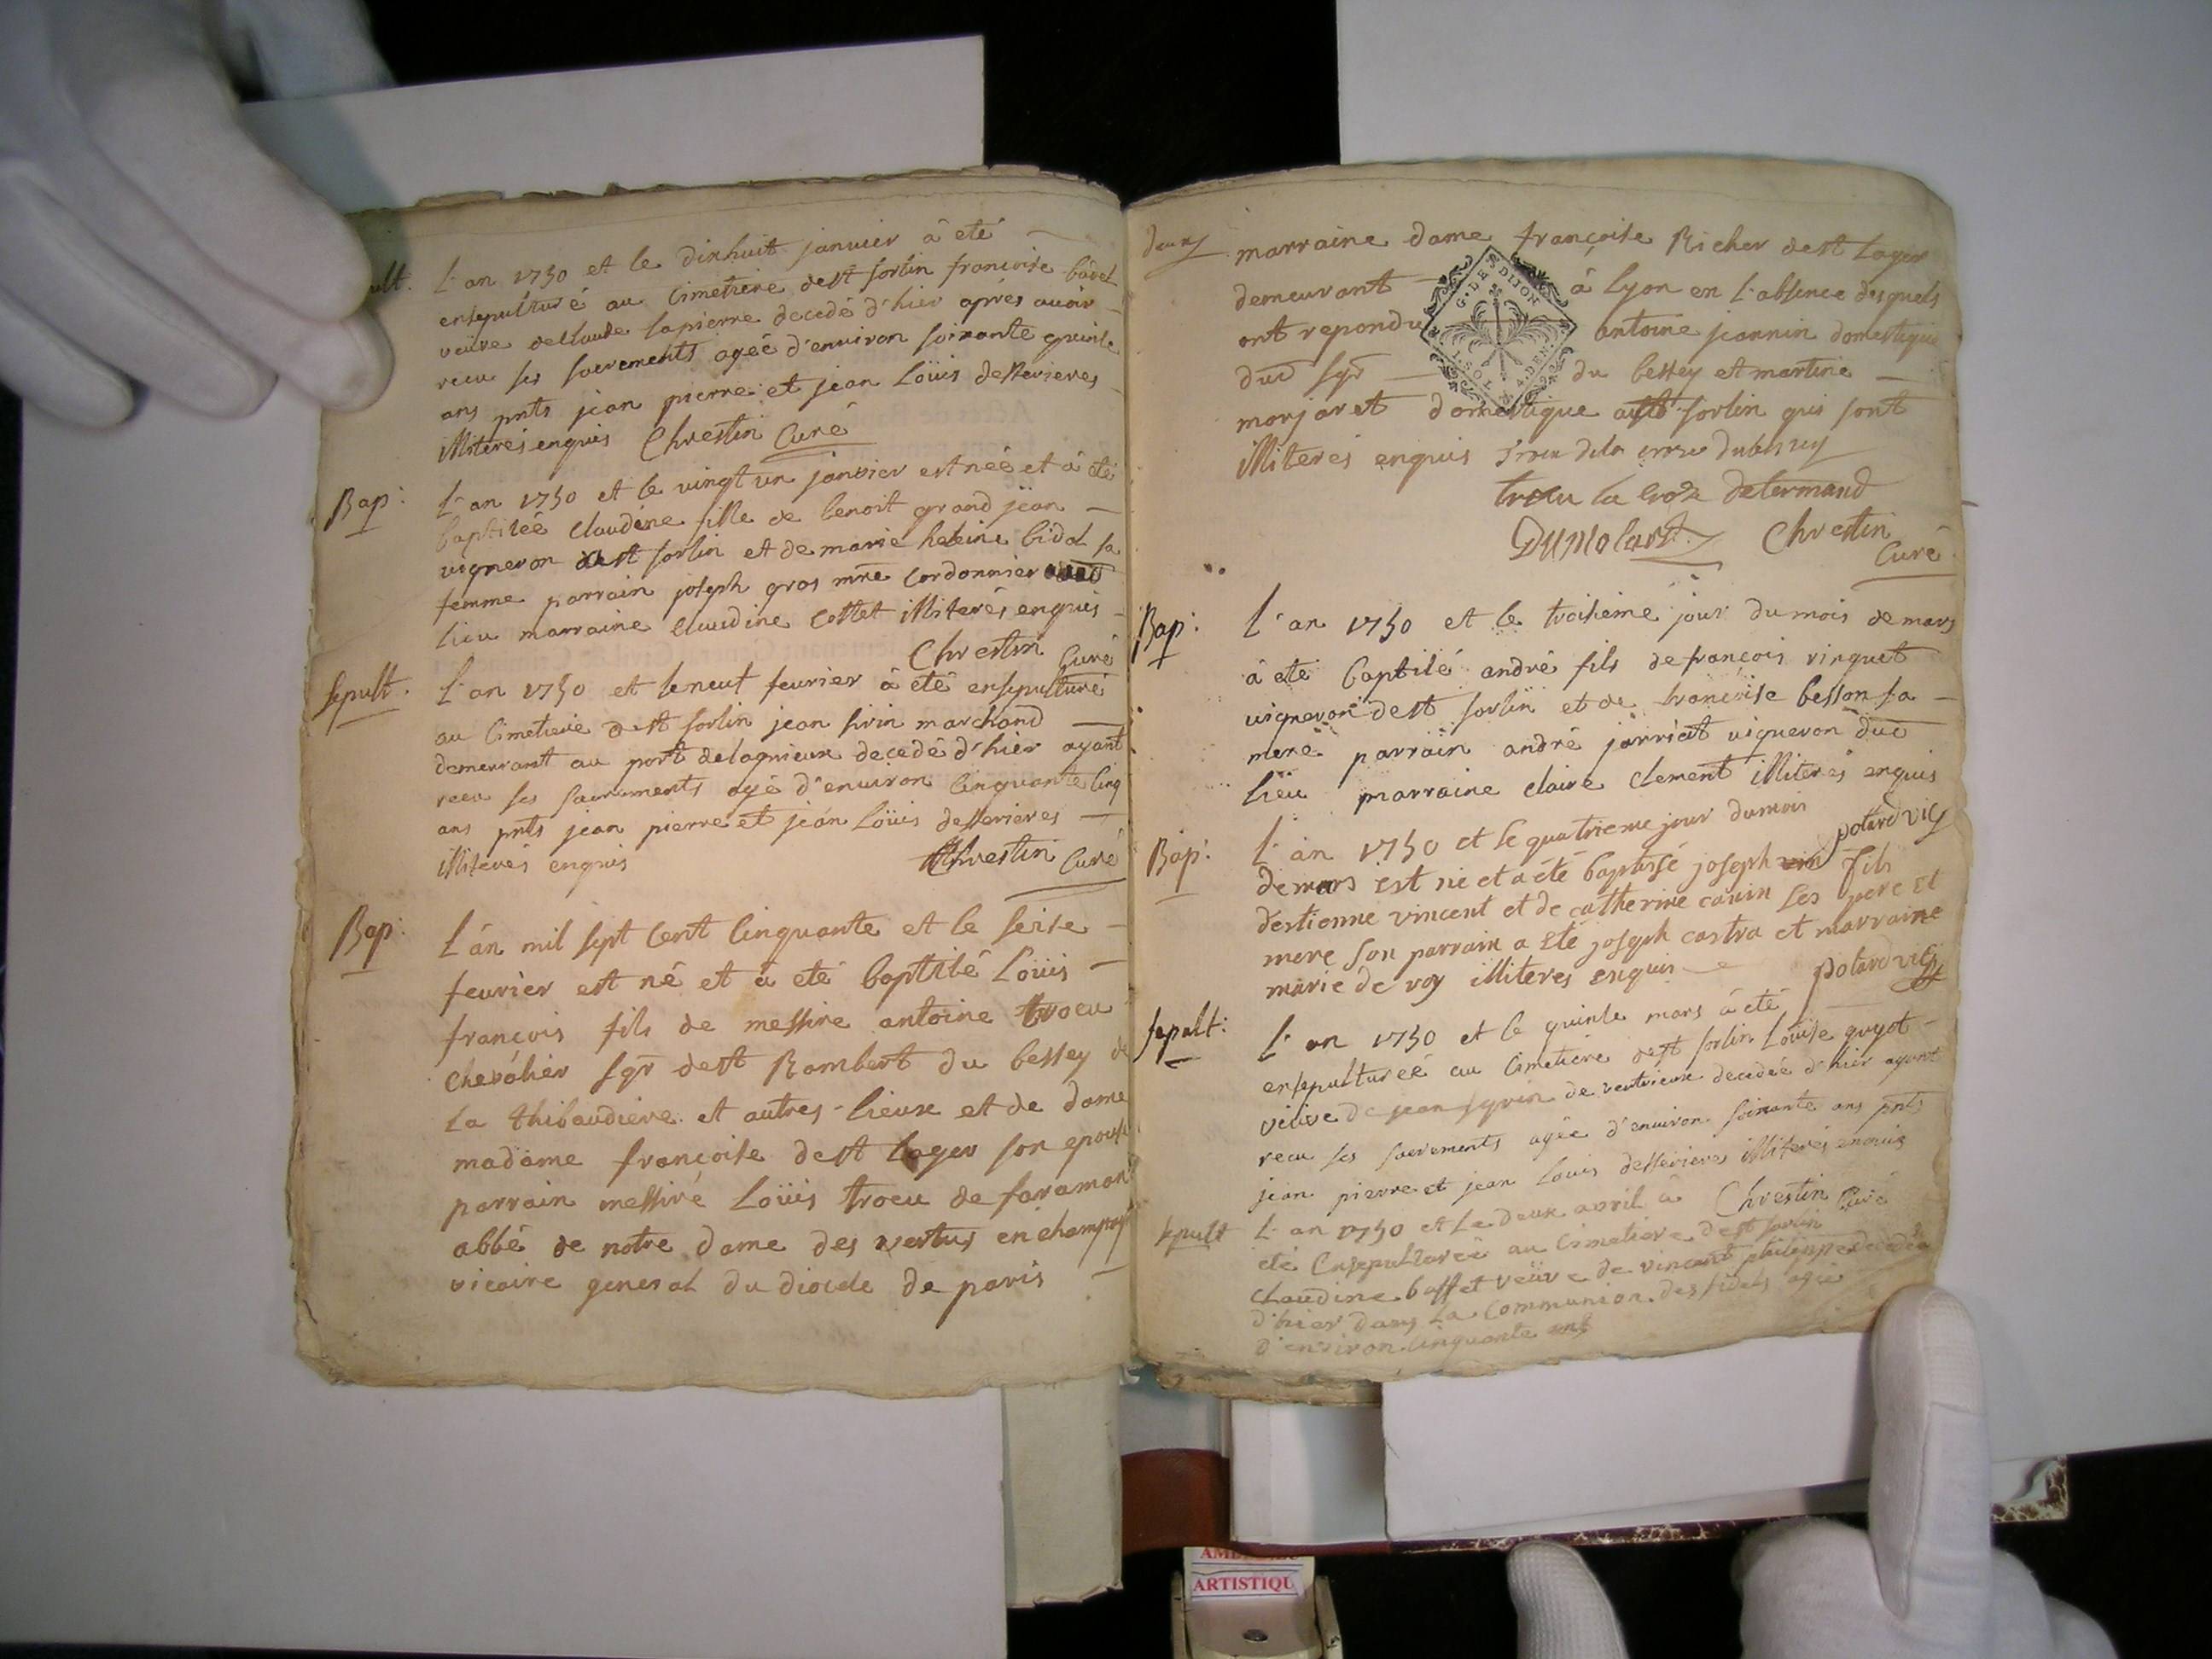 ult. L'an 1750 et le dixhuit janvier à eté
ensepulturé au Cimetiere dest sorlin francoise badet
veuve de claude lapierre decedé d'hier aprés avoir
recu ses sacrements agée d'environ soixante quinse
ans pnts jean pierre et jean Loüis desserieres
illiterés enquis Chrestin Curé
Bap: L'an 1750 et le vingt un janvier est née et à eté
baptisée Claudine fille de benoit grand jean
vigneron dest sorlin et de marie heleine bidal sa
femme parrain joseph gros mre Cordonnier
lieu marraine Claudine Collet illiterés enquis
Chrestin Curé
sepult. L'an 1750 et le neuf fevrier à eté ensepulturé
au Cimetiere dest sorlin jean sirin marchand
demeurant au port delagnieux decedé d'hier ayant
receu ses sacrements agé d'environ Cinquante Cinq
ans pnts jean pierre et jean Loüis desserieres
illiterés enquis Chrestin Curé
Bap: L'an mil sept Cent Cinquante et le seise
fevrier est né et à eté baptisé Loüis
françois fils de messire antoine trocu
Chevalier sgr dest Rambert du bessey de
La thibaudiere et autres lieux et de dame
madame francoise dest Lager son epouse
parrain messire Loüis trocu de
abbé de notre dame des vertus en
vicaire general du diocese de paris
marraine dame françoise Richer dest Lager
demeurant à Lyon en l'absence desquels
G. DE DIJON
ont repondu antoine jeannin domestique
dud sgr du bessey et martine
SOL 4. DEN.
morjaret domestique aud sorlin qui sont
illiterés enquis trocu dela croix dubessey
trocu la croix determand
Dumolard Chrestin
Curé
Bap: L'an 1750 et le troisieme jour du mois de mars
à eté baptisé andré fils de françois ringuet
vigneron dest sorlin et de francoise besson sa
mere parrain andré jarricot vigneron dud
lieu marraine claire Clement illiterés enquis
potard vic
Bap: L'an 1750 et le quatrieme jour dumois
demars est né et a été baptisé joseph fils
destienne vincent et de catherine cauin ses pere et
mere son parrain a eté joseph castra et marraine
marie de voy illiteres enquis potard vic
sepult: L'an 1750 et le quinse mars à eté
ensepulturéé au Cimetiere dest sorlin Loüise guyot
veuve de jean de decedéé d'hier ayant
receu ses sacrements agée d'environ soixante ans pnts
jean pierre et jean Louis desserieres illiterés enquis
Chrestin Curé
sepult L'an 1750 et le deux avril à
eté Ensepulturéé au Cimetiere dest sorlin
Claudine basset veüve de vincent philippe decedéé
d'hier dans La Communion des fidels agée
d'environ Cinquante ans
ARTISTIQU